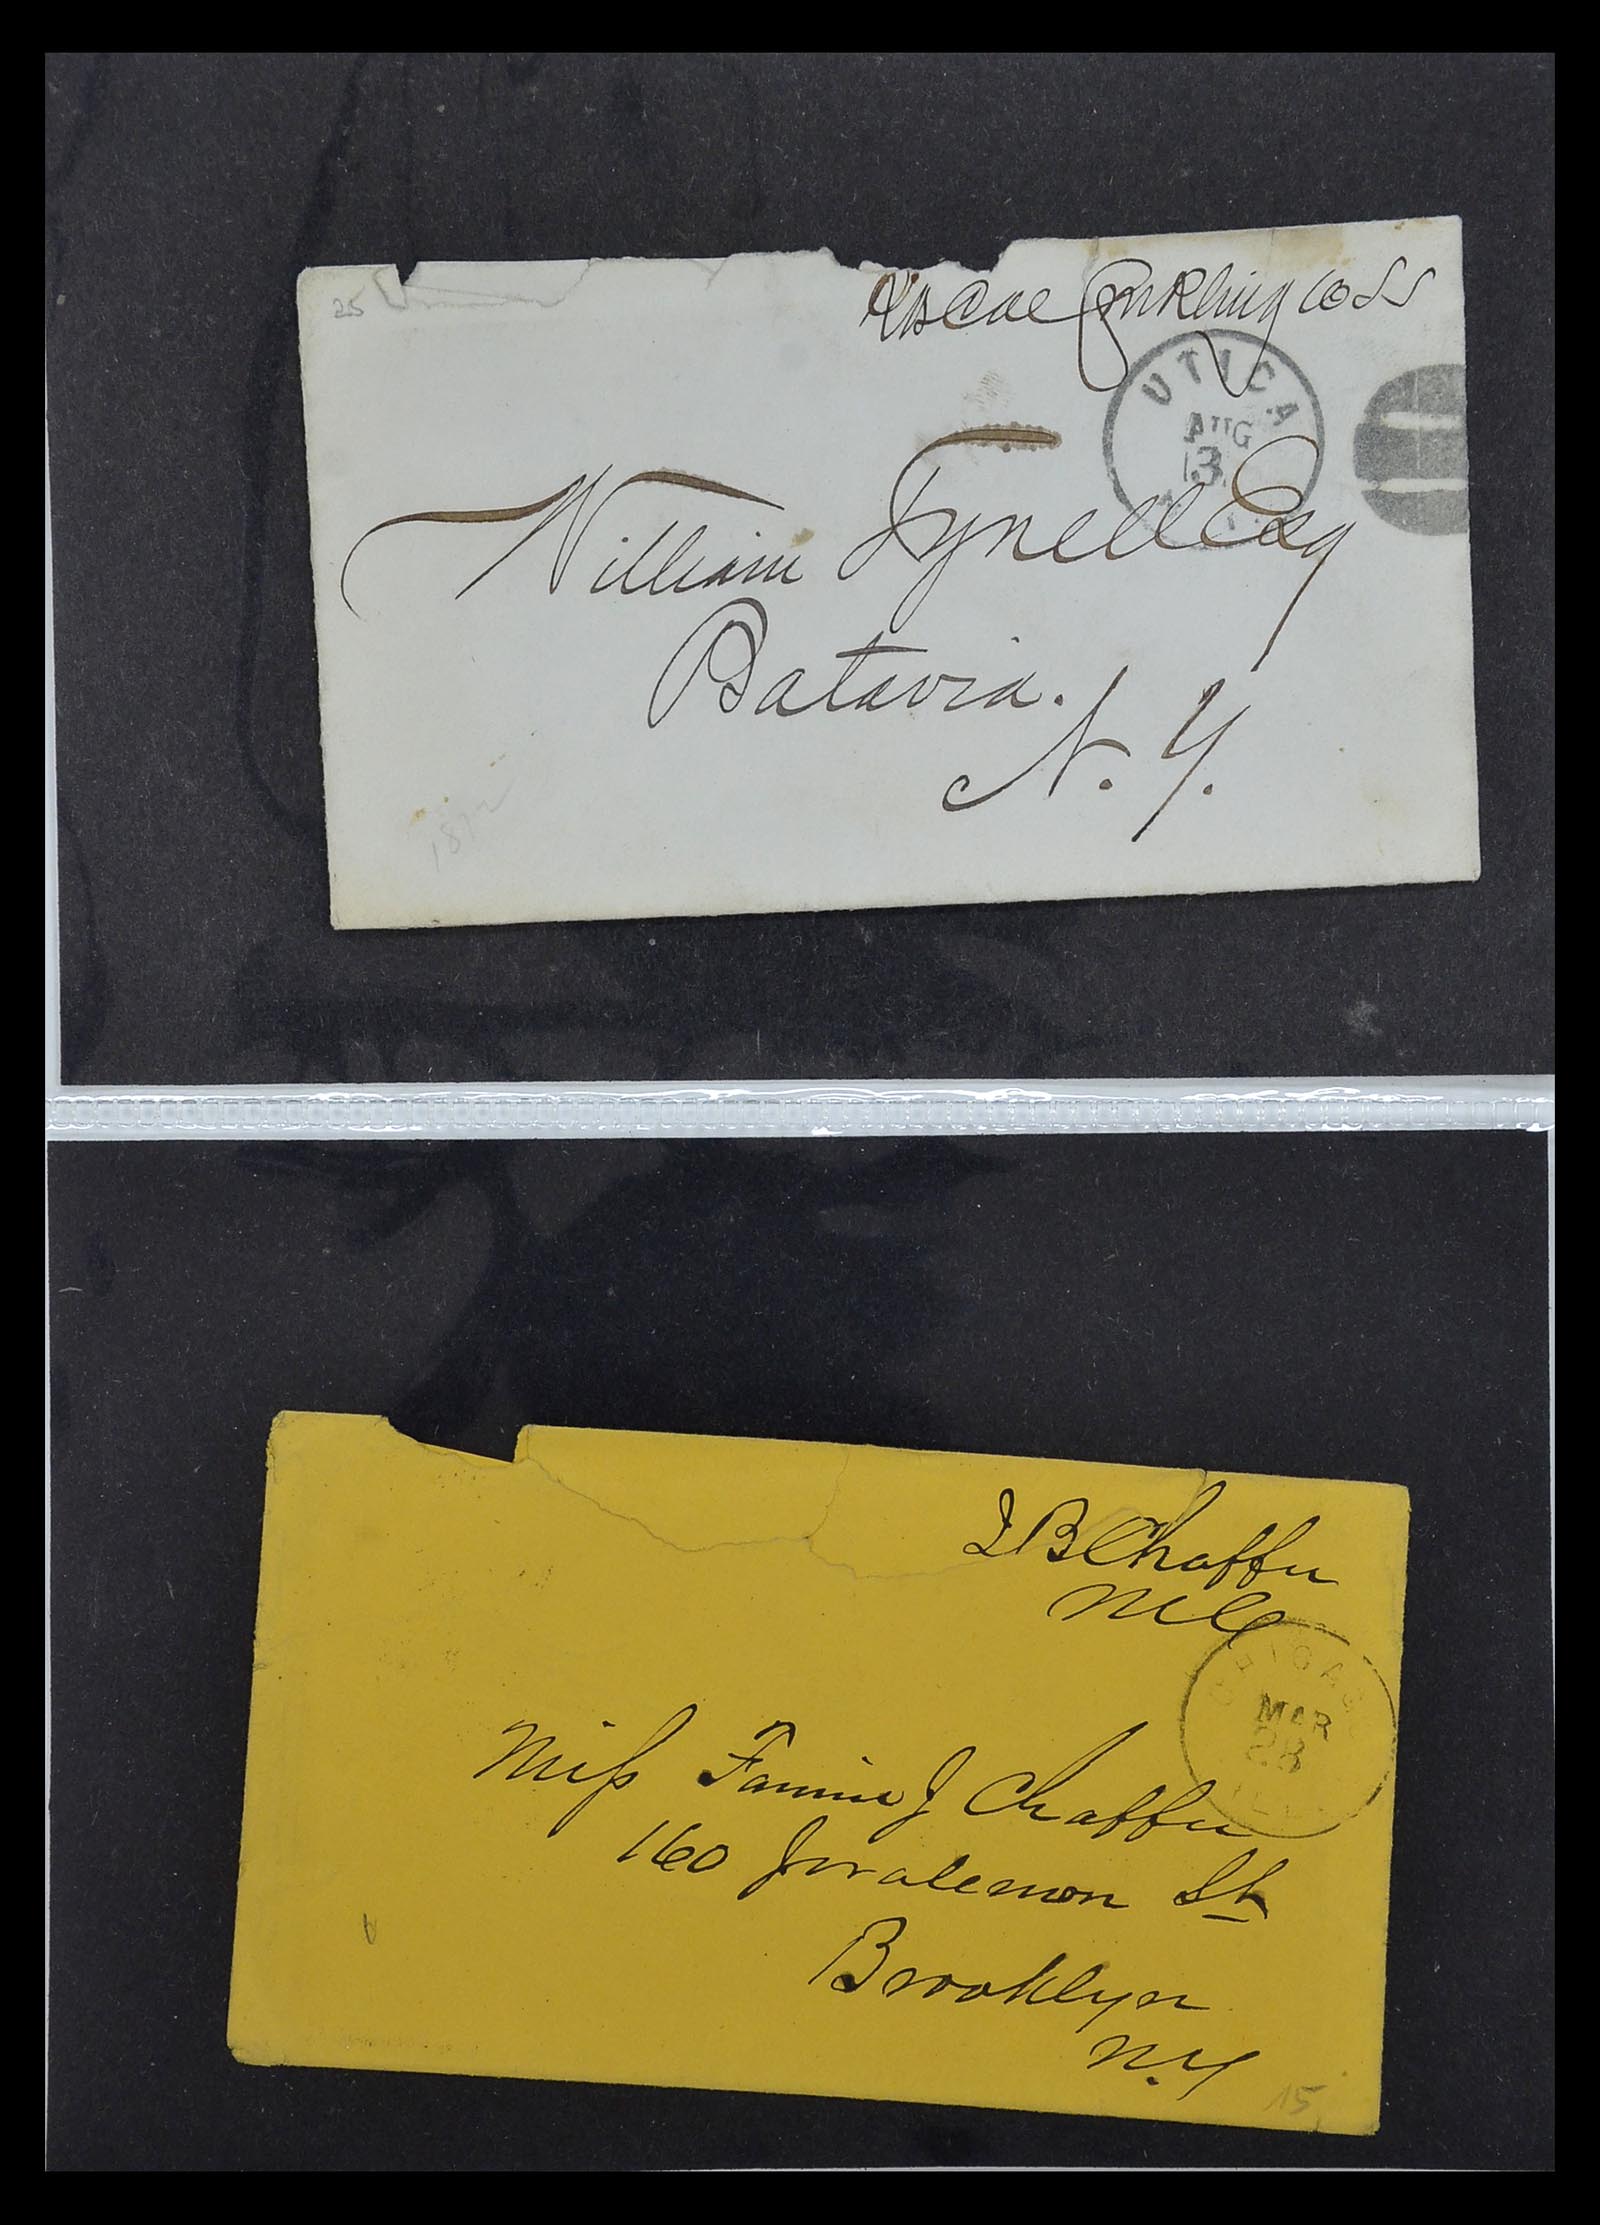 25
Roscoe Conkling USS
UTICA
AUG
13
William Tyrrell Esq
Batavia.
N. Y.
187
J B Chaffee
MC
CHICAGO
MAR
28
ILL.
Miss Fannie J Chaffee
160 Joralemon St
Brooklyn
N.Y
15